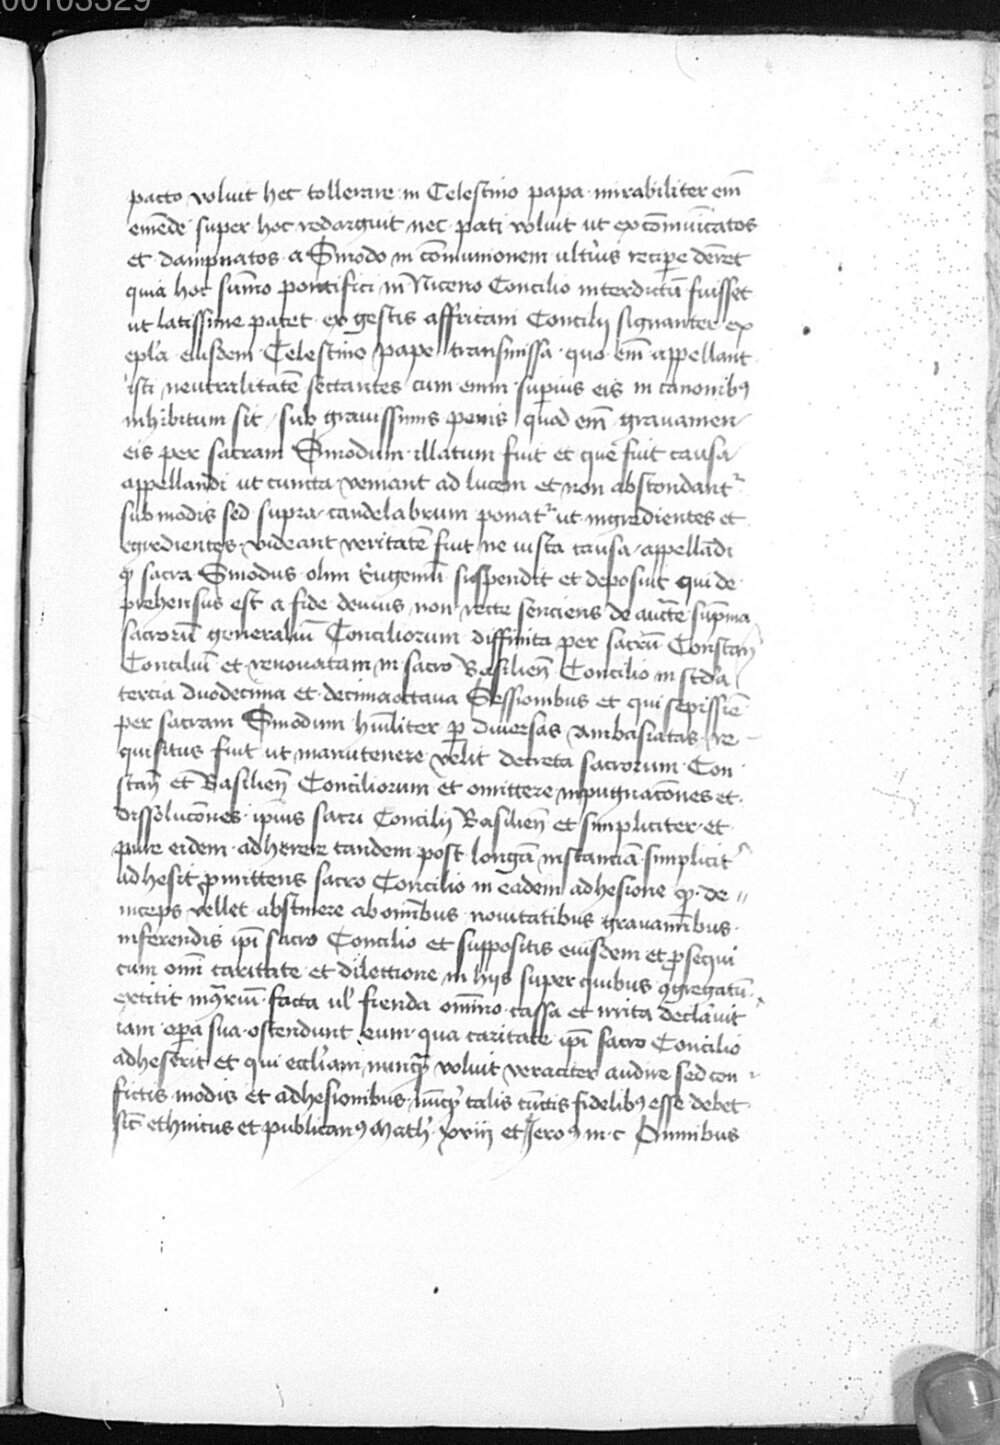 00103329
pacto voluit hec tollerare in Celestino papa mirabiliter em̄
em̄edē super hoc redarguit nec pati voluit ut exco͞muni͞catos
et dampnatos a Sinodo in co͞munionem ulti͛us recip̱e deret
quia hoc su͞mo pontifici in Niceno Concilio interdictū fuisset
ut latissime patet ex gestis affricani Concilij signanter ex
ep̄la eiusdem Celestino pape transmissa quo em̄ appellant
isti neutralitatē sectantes cum enim sup̱ius eis in canonibꝯ
inhibitum sit sub grauissimis penis quod em̄ grauamen
eis per sacram Sinodum illatum fuit et que fuit causa
appellandi ut cuncta veniant ad lucem et non abscondant᷑
sub modis sed supra candelabrum ponat᷑ ut ingredientes et
egredientes videant veritatē fuit ne iusta causa appellādi
ꝙ sacra Sinodus olim Eugeniū suspendit et deposuit qui de
prehensus est a fide deuius non recte senciens de auct͞e sup̄ma
sacrorū generaliū Conciliorum diffinita per sacrū Constan̄
Conciliū et renouatam in sacro Basilien̄ Concilio in sc̄da
tercia duodecima et decimaoctaua Sessionibus et qui sepissīe
per sacram Sinodum hūiliter ꝑ diuersas ambasiatas re
quisitus fuit ut manutenere velit decreta sacrorum Con
stan̄ et Basilien̄ Conciliorum et omittere inpugnac͞ones et
dissoluc͞ones ip̄ius sacri Concilij Basilien̄ et simpliciter et
pure eidem adherere tandem post longā instanciā simplicit᷑
adhesit ꝓmittens sacro Concilio in eadem adhesione ꝙ de
inceps vellet abstinere ab om̄ibus nouitatibus grauam̄ibus
inferendis ip̄i sacro Concilio et suppositis eiusdem et ꝓsequi
cum om̄i caritate et dilectione in hijs super quibus ꝯgregatū
extitit facta ul̄ fienda om̄ino cassa et irrita decl̄auit
iam op̱a sua ostendunt eum qua caritate ip̄i sacro Concilio
adheserit et qui eccl̄iam nunꝙ̄ voluit veraciter audire sed con
fictis modis et adhesionibus talis cūctis fidelibꝯ esse debet
sic̄ ethnicus et publicanꝯ Math̄ xviij et Jeroꝯ in c Omnibus